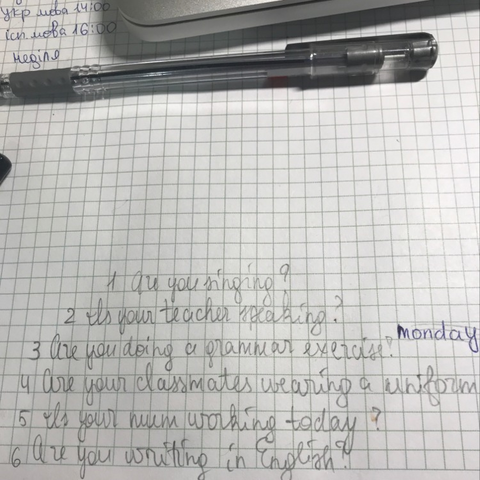 укр мова 14:00
ісп мова 16:00
неділя
1 Are you singing?
2 Is your teacher speaking?
monday
3 Are you doing a grammar exercise?
4 Are your classmates wearing a uniform
5 Is your mum working today?
6 Are you writing in English?